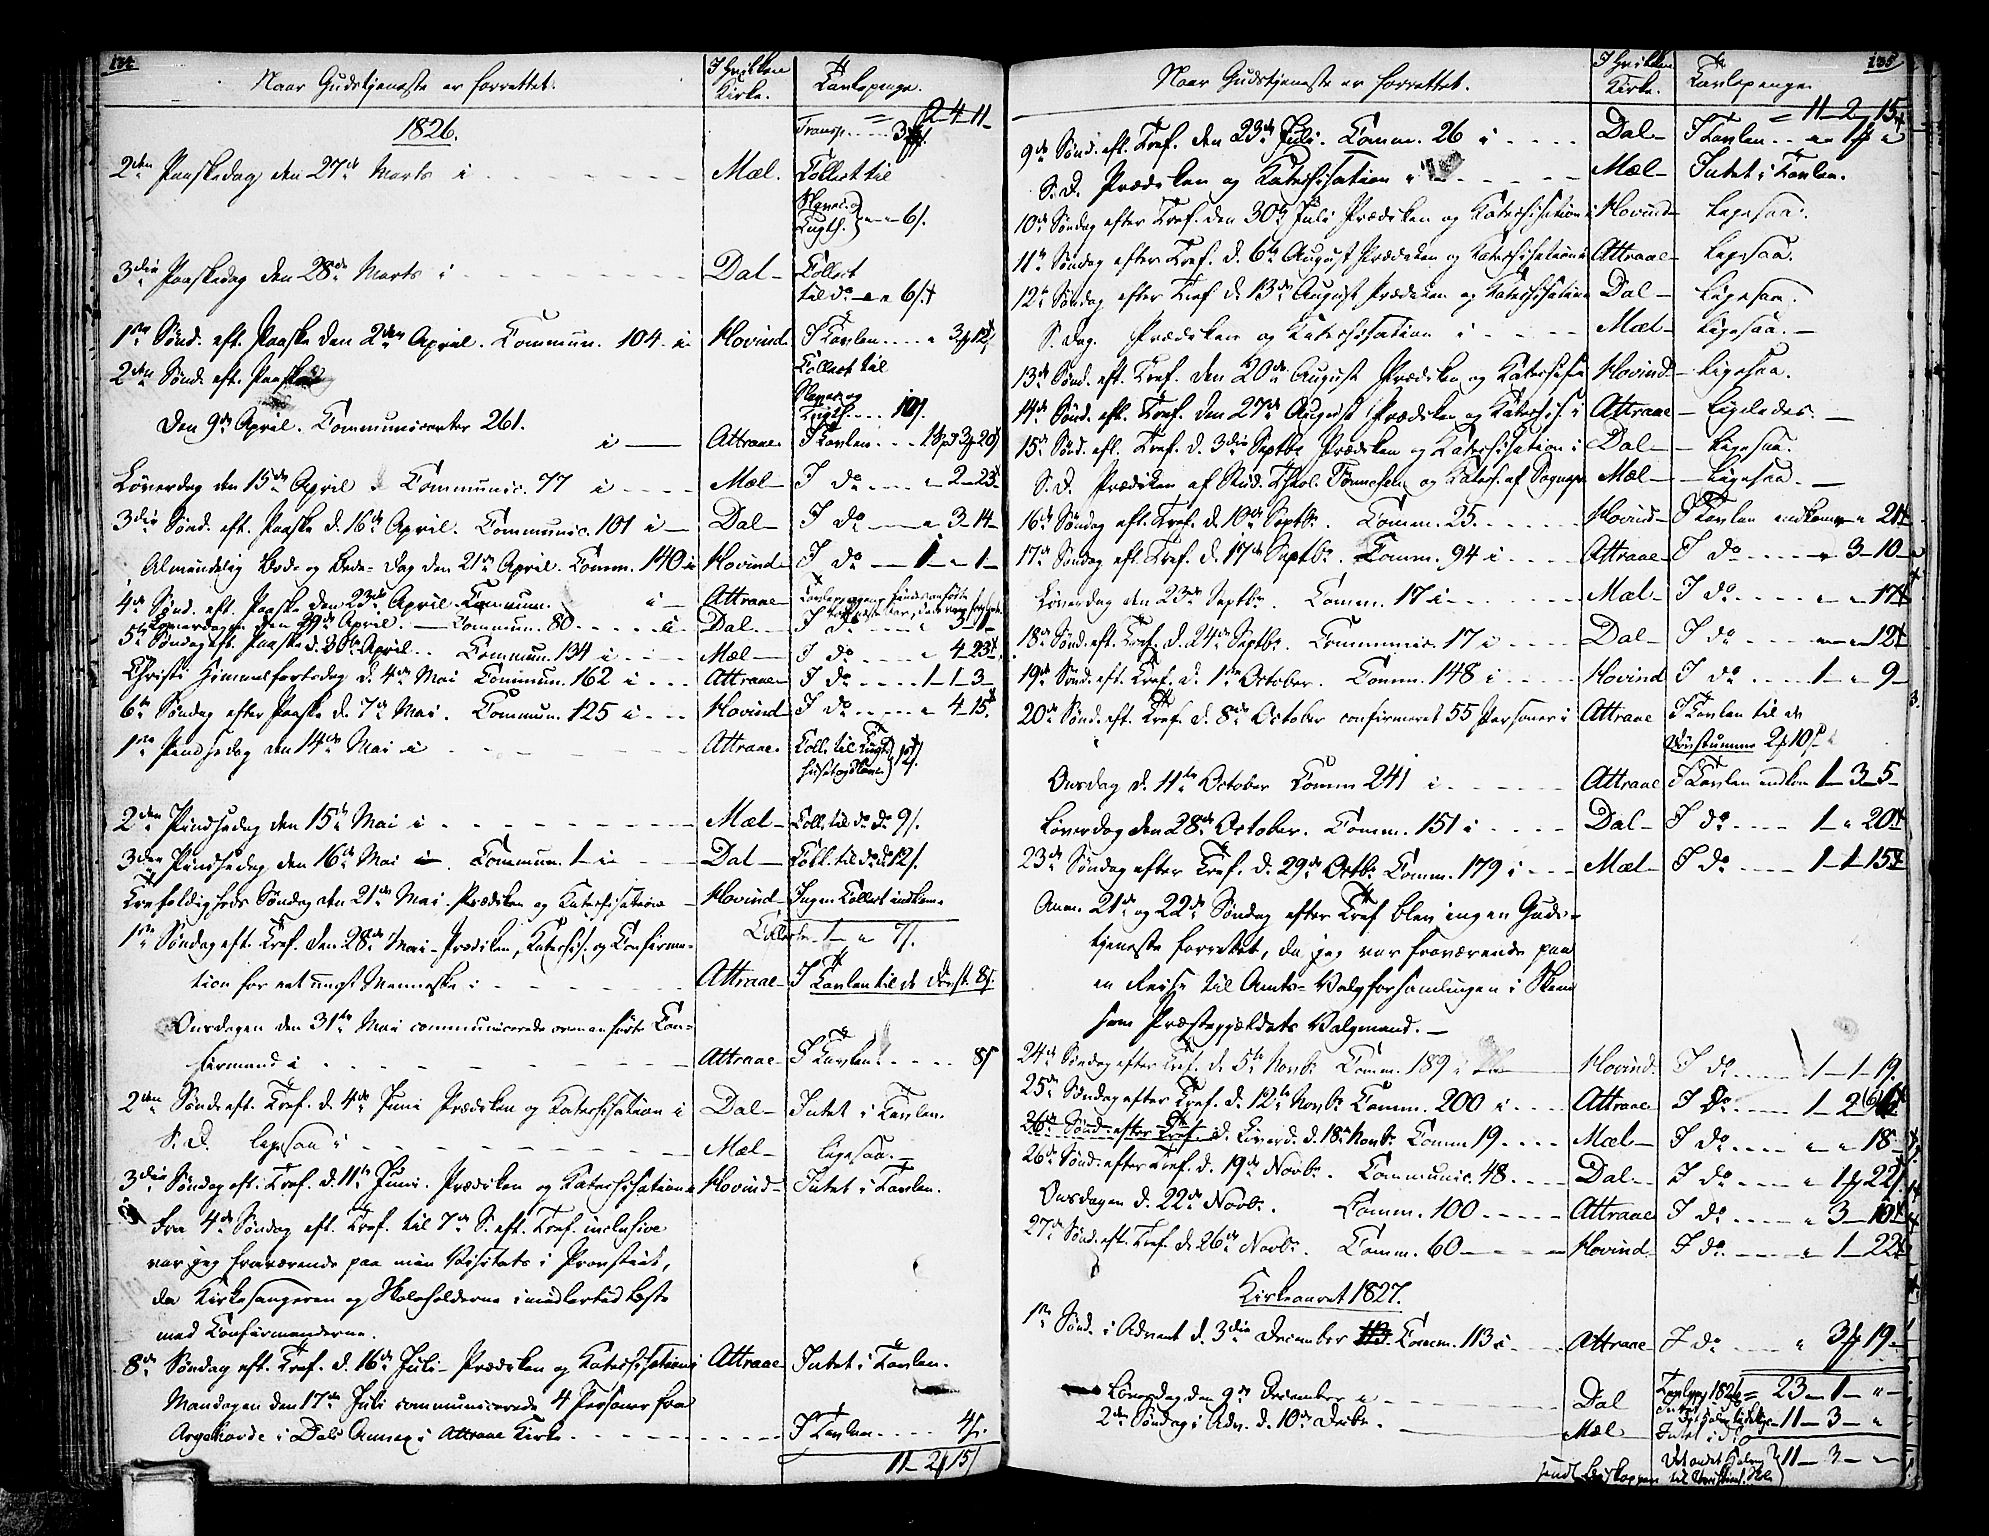 134
Naar Gudstjeneste er forrettet.
I hvilken Kirke.
Tavlepenge.
1826.
Transp. 2-4-11
2den Paaskedag den 27de Marts i Mæl. Collect til Slaver og Tugth. 6 s.
3die Paaskedag den 28de Marts i Dal Collect til do 6 s.
1ste Sønd. eft. Paaske den 2den April. Commun. 104 i Hovind. I Tavlen 3 12
2den Sønd. eft. Paaske
Collect til Slaver og Tugth. 10 s.
den 9de April. Communicanter 261. i Attraae. I Tavlen 20
Løverdag den 15de April Communic. 77 i Mæl I do 2-23
3die Sønd. eft. Paaske d. 16de April. Communic. 101 i Dal I do 3-14
Almindelig Bede- og Bods-Dag den 21de April. Comm. 140 i Hovind I do 1 " 1
4de Sønd. eft. Paaske den 23de April Commun. i Attraae
Løverdagen den 29de April. Commun. 80 i Dal I do 3-1
5te Søndag eft. Paaske d. 30te April. Commun. 134 i Mæl I do 4-23
Christi Himmelfartsdag d. 4de Mai Commun. 162 i Attraae I do 1-1-3
6te Søndag efter Paaske d. 7de Mai. Commun. 125 i Hovind I do 4-15
1ste Pindsedag den 14de Mai i Attraae. Coll. til Tugthuset og Slaver 12 s.
2den Pindsedag den 15de Mai i Mæl Coll. til do do 9 s.
3die Pindsedag den 16de Mai i Commun. 1 i Dal Coll. til do do 12 s.
Trefoldigheds Søndag den 21de Mai. Prædiken og Katechisation Hovind Ingen Collect indkom
1ste Søndag eft. Tref. den 28de Mai Prædiken, Katechis. og Confirma-
tion for eet ungt Menneske i Attraae I Tavlen til de Døvst. 8 s.
Onsdagen den 31te Mai communicerede ovenanførte Con-
firmand i Attraae I Tavlen 8 s
2den Sønd. eft. Tref. d. 4de Juni Prædiken og Katechisation i Dal Intet i Tavlen.
S. D. ligesaa i Mæl ligesaa.
3die Søndag eft. Tref. d. 11te Juni. Prædiken og Katechisation Hovind Intet i Tavlen.
Fra 4de Søndag eft. Tref. til 7de S. eft. Tref. inclusive
var jeg fraværende paa min Visitats i Provstiet,
da Kirkesangeren og Skoleholderne imidlertid læste
med Confirmanderne.
8de Søndag eft. Tref. d. 16de Juli Prædiken og Katechisation i Attraae Intet i Tavlen.
Mandagen den 17de Juli communicerede 4 Personer fra
i Dals Annex i Attraae Kirke I Tavlen 4 s.
11-2-15
135
Naar Gudstjeneste er forrettet.
I hvilken Kirke.
Tavlepenge.
11-2-15
9de Sønd. eft. Tref. den 23de Juli. Comm. 26 i Dal I Tavlen
S. D. Prædiken og Katechisation i Mæl Intet i Tavlen.
10de Søndag efter Tref. den 30te Juli Prædiken og Katechisation i Hovind ligesaa.
11te Søndag efter Tref. d. 6te August Prædiken og Katechisation i Attraae ligesaa.
12te Søndag efter Tref. d. 13de August Prædiken og Katechisation Dal ligesaa.
S. Dag. Prædiken og Katechisation i Mæl ligesaa.
13de Sønd. eft. Tref. den 20de August Prædiken og Katechisa Hovind ligesaa.
14de Sønd. eft. Tref. den 27de August Prædiken og Katechis. i Attraae ligeledes.
15de Sønd. eft. Tref. d. 3die Septbr Prædiken og Katechisation i Dal ligesaa.
S. D. Prædiken af Stud. Theol. Tønnesen og Katech. af Sognepr Mæl ligesaa.
16de Søndag eft. Tref. d. 10de Septbr. Comm. 25 Hovind I Tavlen indkom 21
17de Søndag eft. Tref. d. 17de Septbr. Comm. 94 i Attraae I do 3-10
Løverdag den 23de Septbr. Comm. 17 i Mæl I do 17
18de Sønd. eft. Tref. d. 24de Septbr. Communic. 17 i Dal I do 12
19de Sønd. eft. Tref. d. 1ste October. Comm. 148 i Hovind I do 1 " 9
20de Sønd. eft. Tref. d. 8de October confirmeret 55 Personer i Attraae I Tavlen til de Døvstumme 2 10 s
Onsdag d. 11te October Comm 241 i Attraae I Tavlen indkom 1-3-5
Løverdag den 28de October. Comm. 151 i Dal I do 1 " 20
23de Søndag efter Tref. d. 29de Octbr Comm. 179 i Mæl I do 1-1-15
Anm. 21de og 22de Søndag efter Tref blev ingen Guds-
tjeneste forrettet, da jeg var fraværende paa
en Reise til Amts-Valgforsamlingen i Skeen
som Præstegjældets Valgmand.
24de Søndag efter Tref. d. 5te Novbr Comm. 189 i Hovind. I do 1-1-19
25de Søndag efter Tref. d. 12te Novbr Comm. 200 i Attraae I do 1-2
26de Sønd. efter Tref. d. Løverd. d. 18de Novbr Comm 19 Mæl I do 18
26de Sønd. efter Tref. d. 19de Novbr. Communic. 48 Dal I do 1 22
Onsdagen d. 22de Novbr. Comm. 100 Attraae I do 3-10
27de Sønd. eft. Tref. d. 26de Novbr. Comm. 60 Hovind I do 1-22
Kirkeaaret 1827.
1ste Sønd. i Advent d. 3die December 113 Comm. 113 i Attraae I do 3 19
Løverdag den 9de December i Dal
2den Søndag i Adv. d. 10de Decbr. Mæl
Tavlep. 1826 = 23-1-"
11-3-"
Intet i do
11-3-"